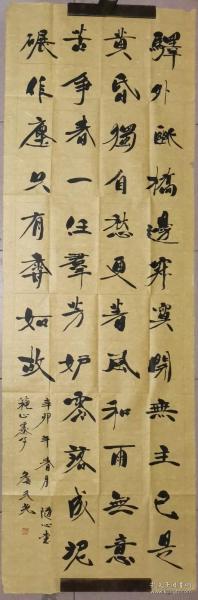 驛外斷橋邊寂寞開無主已是
黄昏獨自愁更著風和雨無意
苦爭春一任羣芳妒零落成泥
碾作塵只有香如故
辛卯年春月隨心堂